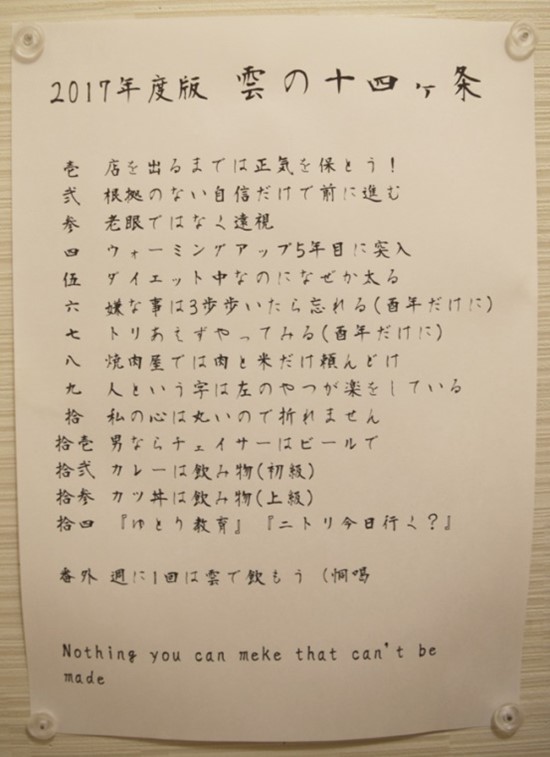 2017年度版 雲の十四ヶ条
壱 店を出るまでは正気を保とう!
弐 根拠のない自信だけで前に進む
参 老眼ではなく遠視
四 ウォーミングアップ5年目に突入
伍 ダイエット中なのになぜか太る
六 嫌な事は3歩歩いたら忘れる(酉年だけに)
七 トリあえずやってみる(酉年だけに)
八 焼肉屋では肉と米だけ頼んどけ
九 人という字は左のやつが楽をしている
拾 私の心は丸いので折れません
拾壱 男ならチェイサーはビールで
拾弐 カレーは飲み物(初級)
拾参 カツ丼は飲み物(上級)
拾四 『ゆとり教育』『ニトリ今日行く?』
番外 週に1回は雲で飲もう (恫喝
Nothing you can meke that can't be
made